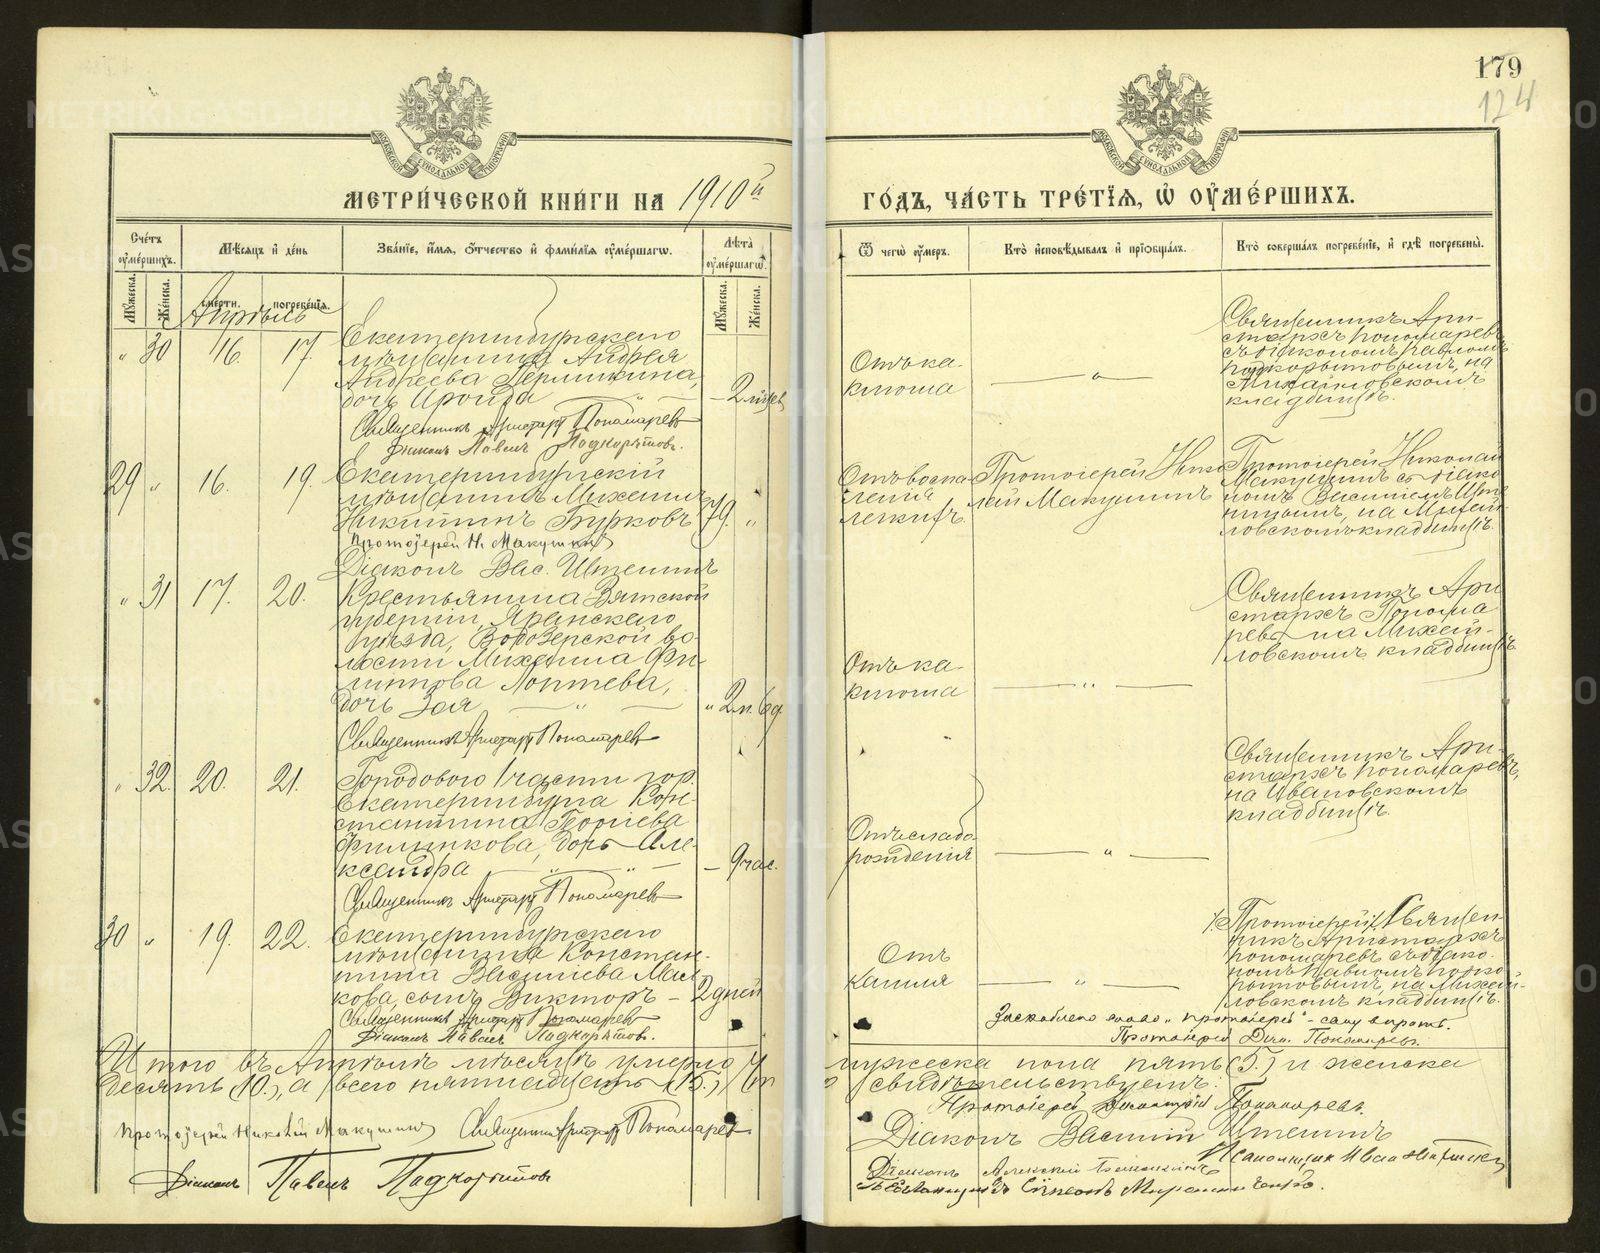 179
124
МЕТРИ́ЧЕСКОЙ КНИ́ГИ НА 1910й
ГО́ДЪ, ЧА́СТЬ ТРЕ́ТІЯ, Ѡ ОУМЕ́РШИХЪ.
Сче́тъ оуме́ршихъ.
Мѣ́сяцъ и де́нь
Зва́ніе, и́мя, о́тчество и фами́лія оуме́ршагѡ.
Лѣ́та оуме́ршагѡ.
Ѿ чегѡ̀ оу́меръ.
Кто̀ исповѣ́дывалъ и пріѡбща́лъ.
Кто̀ соверша́лъ погребе́ніе, и гдѣ̀ погребены̀.
Му́жеска.
Же́нска.
сме́рти.
погребе́нія.
Му́жеска.
Же́нска.
Апрѣль
" 30 16. 17.
Екатеринбургскаго
мѣщанина Андрея
Андреева Пермикина,
дочь Ироида
Священникъ Аристархъ Пономаревъ
Діаконъ Павелъ Подкорытовъ.
Отъ ка-
клюша
Священникъ Ари-
стархъ Пономаревъ
съ діакономъ Павломъ
Подкорытовымъ, на
Михайловскомъ
кладбищѣ.
29 " 16. 19.
Екатеринбургскій
мѣщанинъ Михаилъ
Никитинъ Бурковъ 79. "
Протоіерей Н. Макушинъ
Діаконъ Вас. Иштенинъ
Отъ воспа-
ленія
легкихъ.
Протоіерей Нико
лай Макушинъ
Протоіерей Николай
Макушинъ съ діако
номъ Василіемъ Ште
нинымъ, на Михай-
ловскомъ кладбищѣ.
" 31 17. 20.
Крестьянина Вятской
губерніи, Яранскаго
уѣзда, Водозерской во-
лости Михаила Фи-
липпова Лоптева,
дочь Зоя " 2 н. 6 д.
Священникъ Аристархъ Пономаревъ
Отъ ка-
клюша
Священникъ Ари
стархъ Понома
ревъ на Михай-
ловскомъ кладбищѣ.
" 32. 20. 21.
Городового 1 части гор.
Екатеринбурга Кон-
стантина Георгіева
Филинкова, дочь Але-
ксандра – 9 час.
Священникъ Аристархъ Пономаревъ
Отъ слабо-
рожденія
Священникъ Ари-
стархъ Пономаревъ,
на Ивановскомъ
кладбищѣ.
30 " 19. 22.
Екатеринбургскаго
мѣщанина Констан-
тина Васильева
кова, сынъ Викторъ – 2 дней
Священникъ Аристархъ Пономаревъ
Діаконъ Павелъ Подкорытовъ.
Отъ
кашля
Протоіерей Священ-
никъ Аристархъ
Пономаревъ съ діако-
номъ Павломъ Подко
рытовымъ, на Михай-
ловскомъ кладбищѣ.
Заскоблено слово "протоіерей" –
Протоіерей Дим. Пономаревъ.
Итого въ Апрѣлѣ мѣсяцѣ умерло мужеска пола пять (5.) и женска
десять (10.), а всего пятнадцать (15.), свидѣтельствуемъ:
Протоіерей Димитрій Пономаревъ.
Протоіерей Николай Макушинъ Священникъ Аристархъ Пономаревъ
Діаконъ Василій Иштенинъ
Діаконъ Павелъ Подкорытовъ
Псаломщикъ Иван
Діаконъ Алексѣй
Псаломщикъ Симеонъ